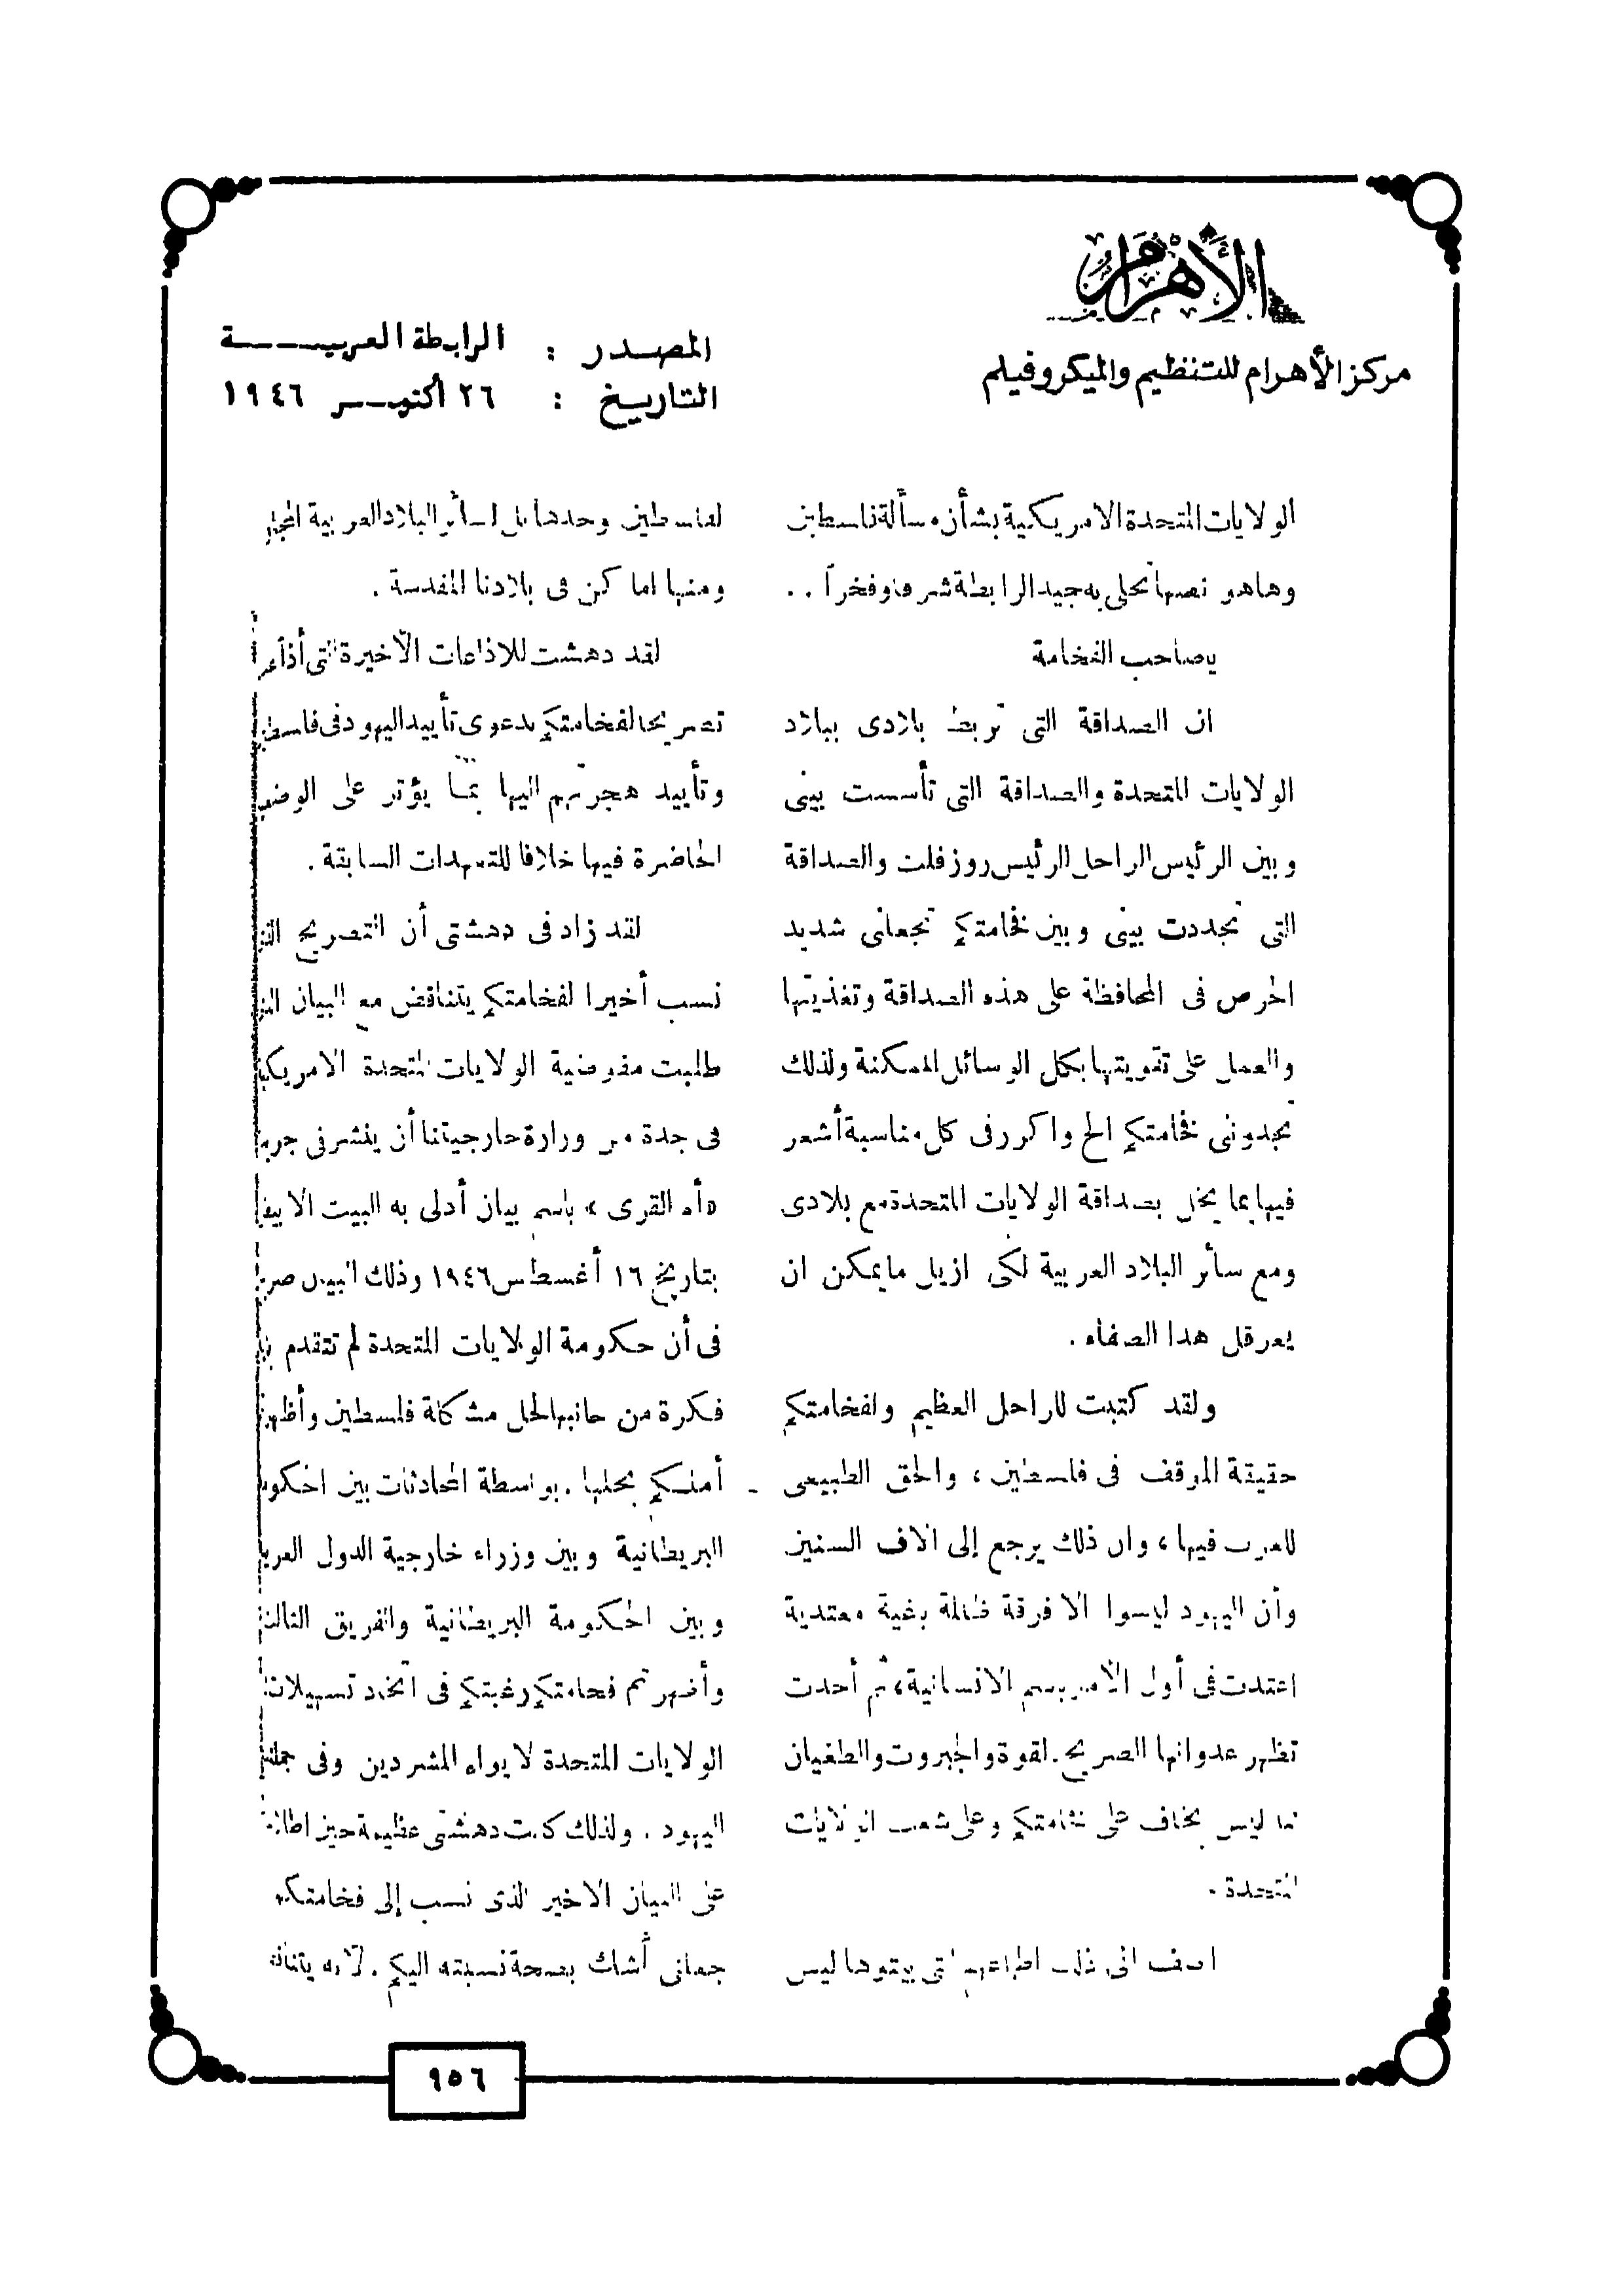 الأهرام
مركز الأهرام للتنظيم والميكروفيلم
المصدر : الرابطة العربية
التاريخ : ٢٦ أكتوبر ١٩٤٦
الولايات المتحدة الامريكية بشأن مسألة فلسطين
وها هو نصها نحلى به جيد الرابطة شرفا وفخراً . .
يصاحب الفخامة
ان الصداقة التى تربط بلادى ببلاد
الولايات المتحدة والصداقة التى تأسست بينى
وبين الرئيس الراحل الرئيس روزفلت والصداقة
التى تجددت بينى وبين فخامتكم تجعلنى شديد
الحرص فى المحافظة على هذه الصداقة وتغذيتها
والعمل على تقويتها بكل الوسائل الممكنة ولذلك
تجدوننى فخامتكم الح واكرر فى كل مناسبة أشعر
فيها بما يخل بصداقة الولايات المتحدة مع بلادى
ومع سائر البلاد العربية لكى ازيل ما يمكن ان
يعرقل هذا الصفاء .
ولقد كتبت للراحل العظيم ولفخامتكم
حقيقة الموقف فى فلسطين ، والحق الطبيعى
للعرب فيها ، وان ذلك يرجع إلى الاف السنين
وأن اليهود ليسوا الا فرقة ظالمة بغية معتدية
اعتدت فى أول الأمر باسم الانسانية ، ثم أخذت
تظهر عدوانها الصريح بالقوة والجبروت والطغيان
مما ليس بخاف على فخامتكم وعلى شعب الولايات
المتحدة .
اضف الى ذلك اطماعهم التى بيتوها ليس
لفلسطين وحدها بل لسائر البلاد العربية
ومنها اماكن فى بلادنا المقدسة .
لقد دهشت للاذاعات الأخيرة التى
تصريحا لفخامتكم بدعوى تأييد اليهود فى
وتأييد هجرتهم اليها بما يؤثر على
الحاضرة فيها خلافا للتعهدات السابقة .
لقد زاد فى دهشتى أن التصريح
نسب أخيرا لفخامتكم يتناقض مع البيان
طلبت مفوضية الولايات المتحدة
فى جدة من وزارة خارجيتنا أن ينشر فى
« أم القرى » باسم بيان أدلى به البيت
بتاريخ ١٦ أغسطس ١٩٤٦ وذلك البيان
فى أن حكومة الولايات المتحدة لم تتقدم
فكرة من جانبها لحل مشكلة فلسطين
أملكم بحلها بواسطة المحادثات بين
البريطانية وبين وزراء خارجية الدول
وبين الحكومة البريطانية والفريق
وأظهرتم فخامتكم رغبتكم فى اتخاذ تسهيلات
الولايات المتحدة لايواء المشردين وفى
اليهود . ولذلك كانت دهشتى عظيمة حين
على البيان الاخير الذى نسب إلى فخامتكم
جعلنى أشك بصحة نسبته اليكم . لأنه
٩٥٦